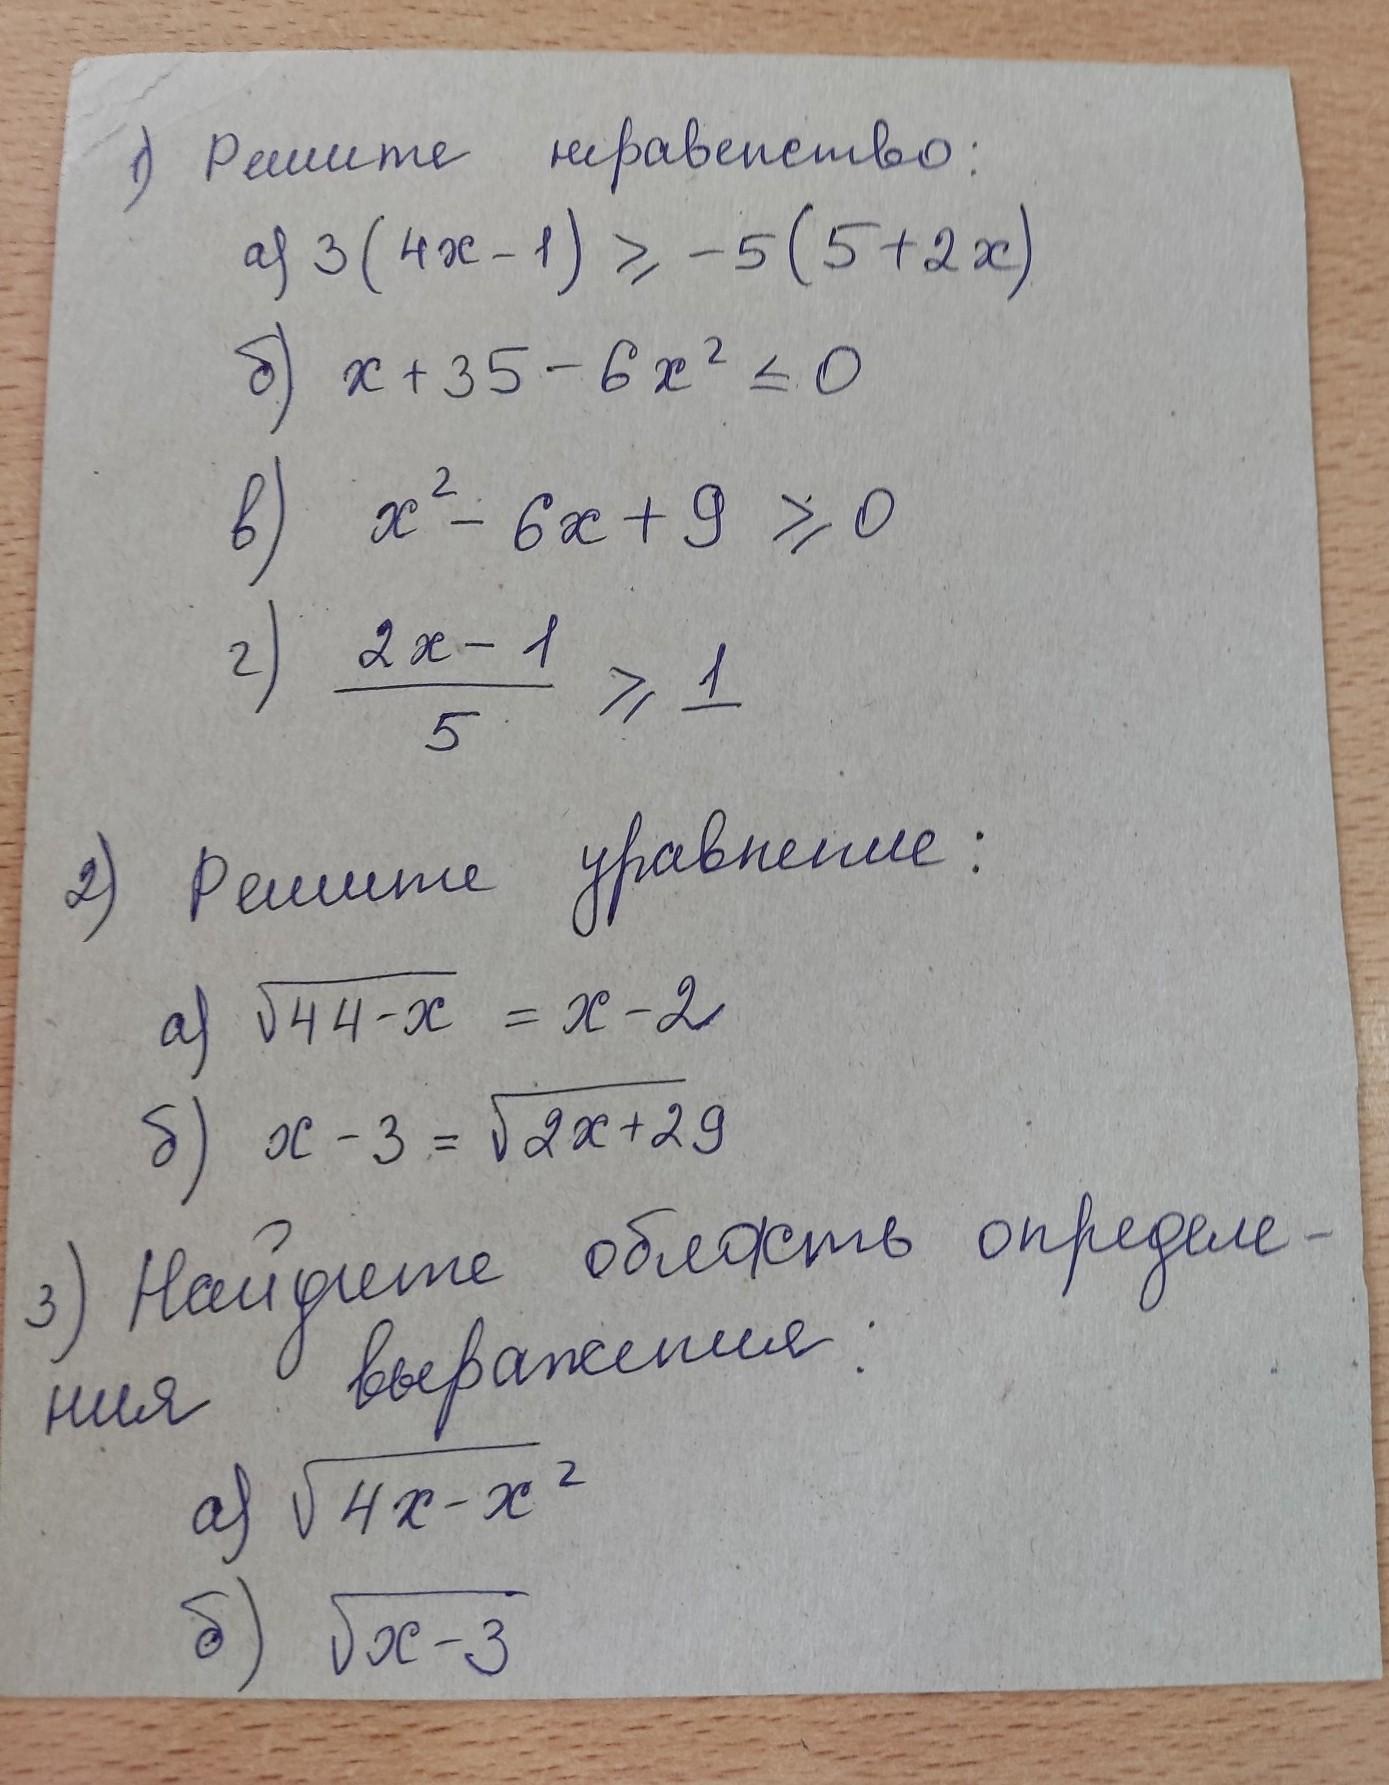 1) Решите неравенство:
а) 3(4x-1) ⩾ -5(5+2x)
б) x+35-6x² ≤ 0
в) x²-6x+9 ⩾ 0
г) (2x-1)/5 ⩾ 1
2) Решите уравнение:
а) √(44-x) = x-2
б) x-3 = √(2x+29)
3) Найдите область определе-
ния выражения:
а) √(4x-x²)
б) √(x-3)